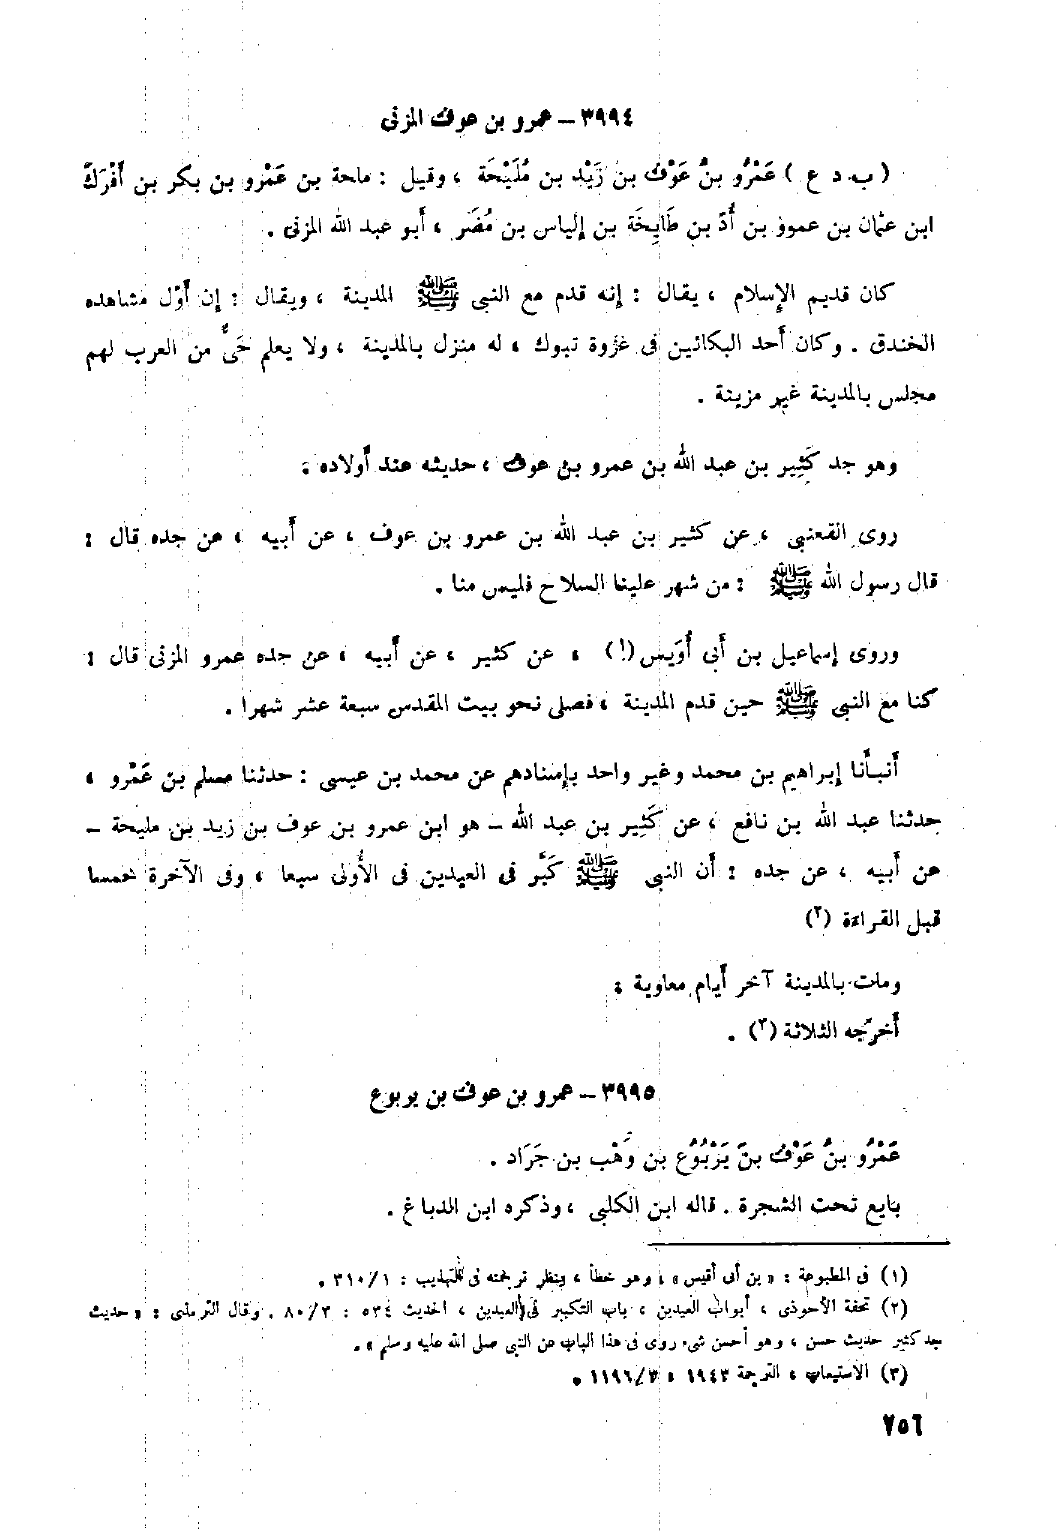 ٣٩٩٤ – عمرو بن عوف المزنى
( ب د ع ) عَمْرُو بنُ عَوْف بن زَيْد بن مُلَيْحَة ، وقيل : ملحة بن عَمْرو بن بكر بن أَفْرَك
ابن عثمان بن عمرو بن أُدّ بن طَابِخَة بن إلياس بن مُضَر ، أَبو عبد الله المزنى .
كان قديم الإسلام ، يقال : إنه قدم مع النبى ﷺ المدينة ، ويقال : إن أَوّل مشاهده
الخندق . وكان أَحد البكائين فى غزوة تبوك ، له منزل بالمدينة ، ولا يعلم حَىٌّ من العرب لهم
مجلس بالمدينة غير مزينة .
وهو جد كَثِير بن عبد الله بن عمرو بن عوف ، حديثه عند أَولاده .
روى القعنبى ، عن كثير بن عبد الله بن عمرو بن عوف ، عن أَبيه ، عن جده قال :
قال رسول الله ﷺ : من شهر علينا السلاح فليس منا .
وروى إسماعيل بن أَبى أُوَيس (١) ، عن كثير ، عن أَبيه ، عن جده عمرو المزنى قال :
كنا مع النبى ﷺ حين قدم المدينة ، فصلى نحو بيت المقدس سبعة عشر شهرا .
أَنبأَنا إبراهيم بن محمد وغير واحد بإسنادهم عن محمد بن عيسى : حدثنا مسلم بن عَمْرو ،
حدثنا عبد الله بن نافع ، عن كَثِير بن عبد الله – هو ابن عمرو بن عوف بن زيد بن مليحة –
عن أَبيه ، عن جده : أَن النبى ﷺ كَبَّر فى العيدين فى الأُولى سبعا ، وفى الآخرة خمسا
قبل القراءة (٢)
ومات بالمدينة آخر أَيام معاوية .
أَخرجه الثلاثة (٣) .
٣٩٩٥ – عمرو بن عوف بن يربوع
عَمْرُو بنُ عَوْف بنَ يَرْبُوُع بن وَهْب بن جَرَاد .
بايع تحت الشجرة . قاله ابن الكلبى ، وذكره ابن الدباغ .
(١) فى المطبوعة : « بن أبى أقيس » ، وهو خطأ ، ينظر ترجمته فى التهذيب : ٣١٠/١ .
(٢) تحفة الأحوذى ، أبواب العيدين ، باب التكبير فى العيدين ، الحديث ٥٣٤ : ٨٠/٣ . وقال الترمذى : « حديث
جد كثير حديث حسن ، وهو أحسن شىء روى فى هذا الباب عن النبى صلى الله عليه وسلم » .
(٣) الاستيعاب ، الترجمة ١٩٤٣ : ١١٩٦/٣ .
٢٥٦